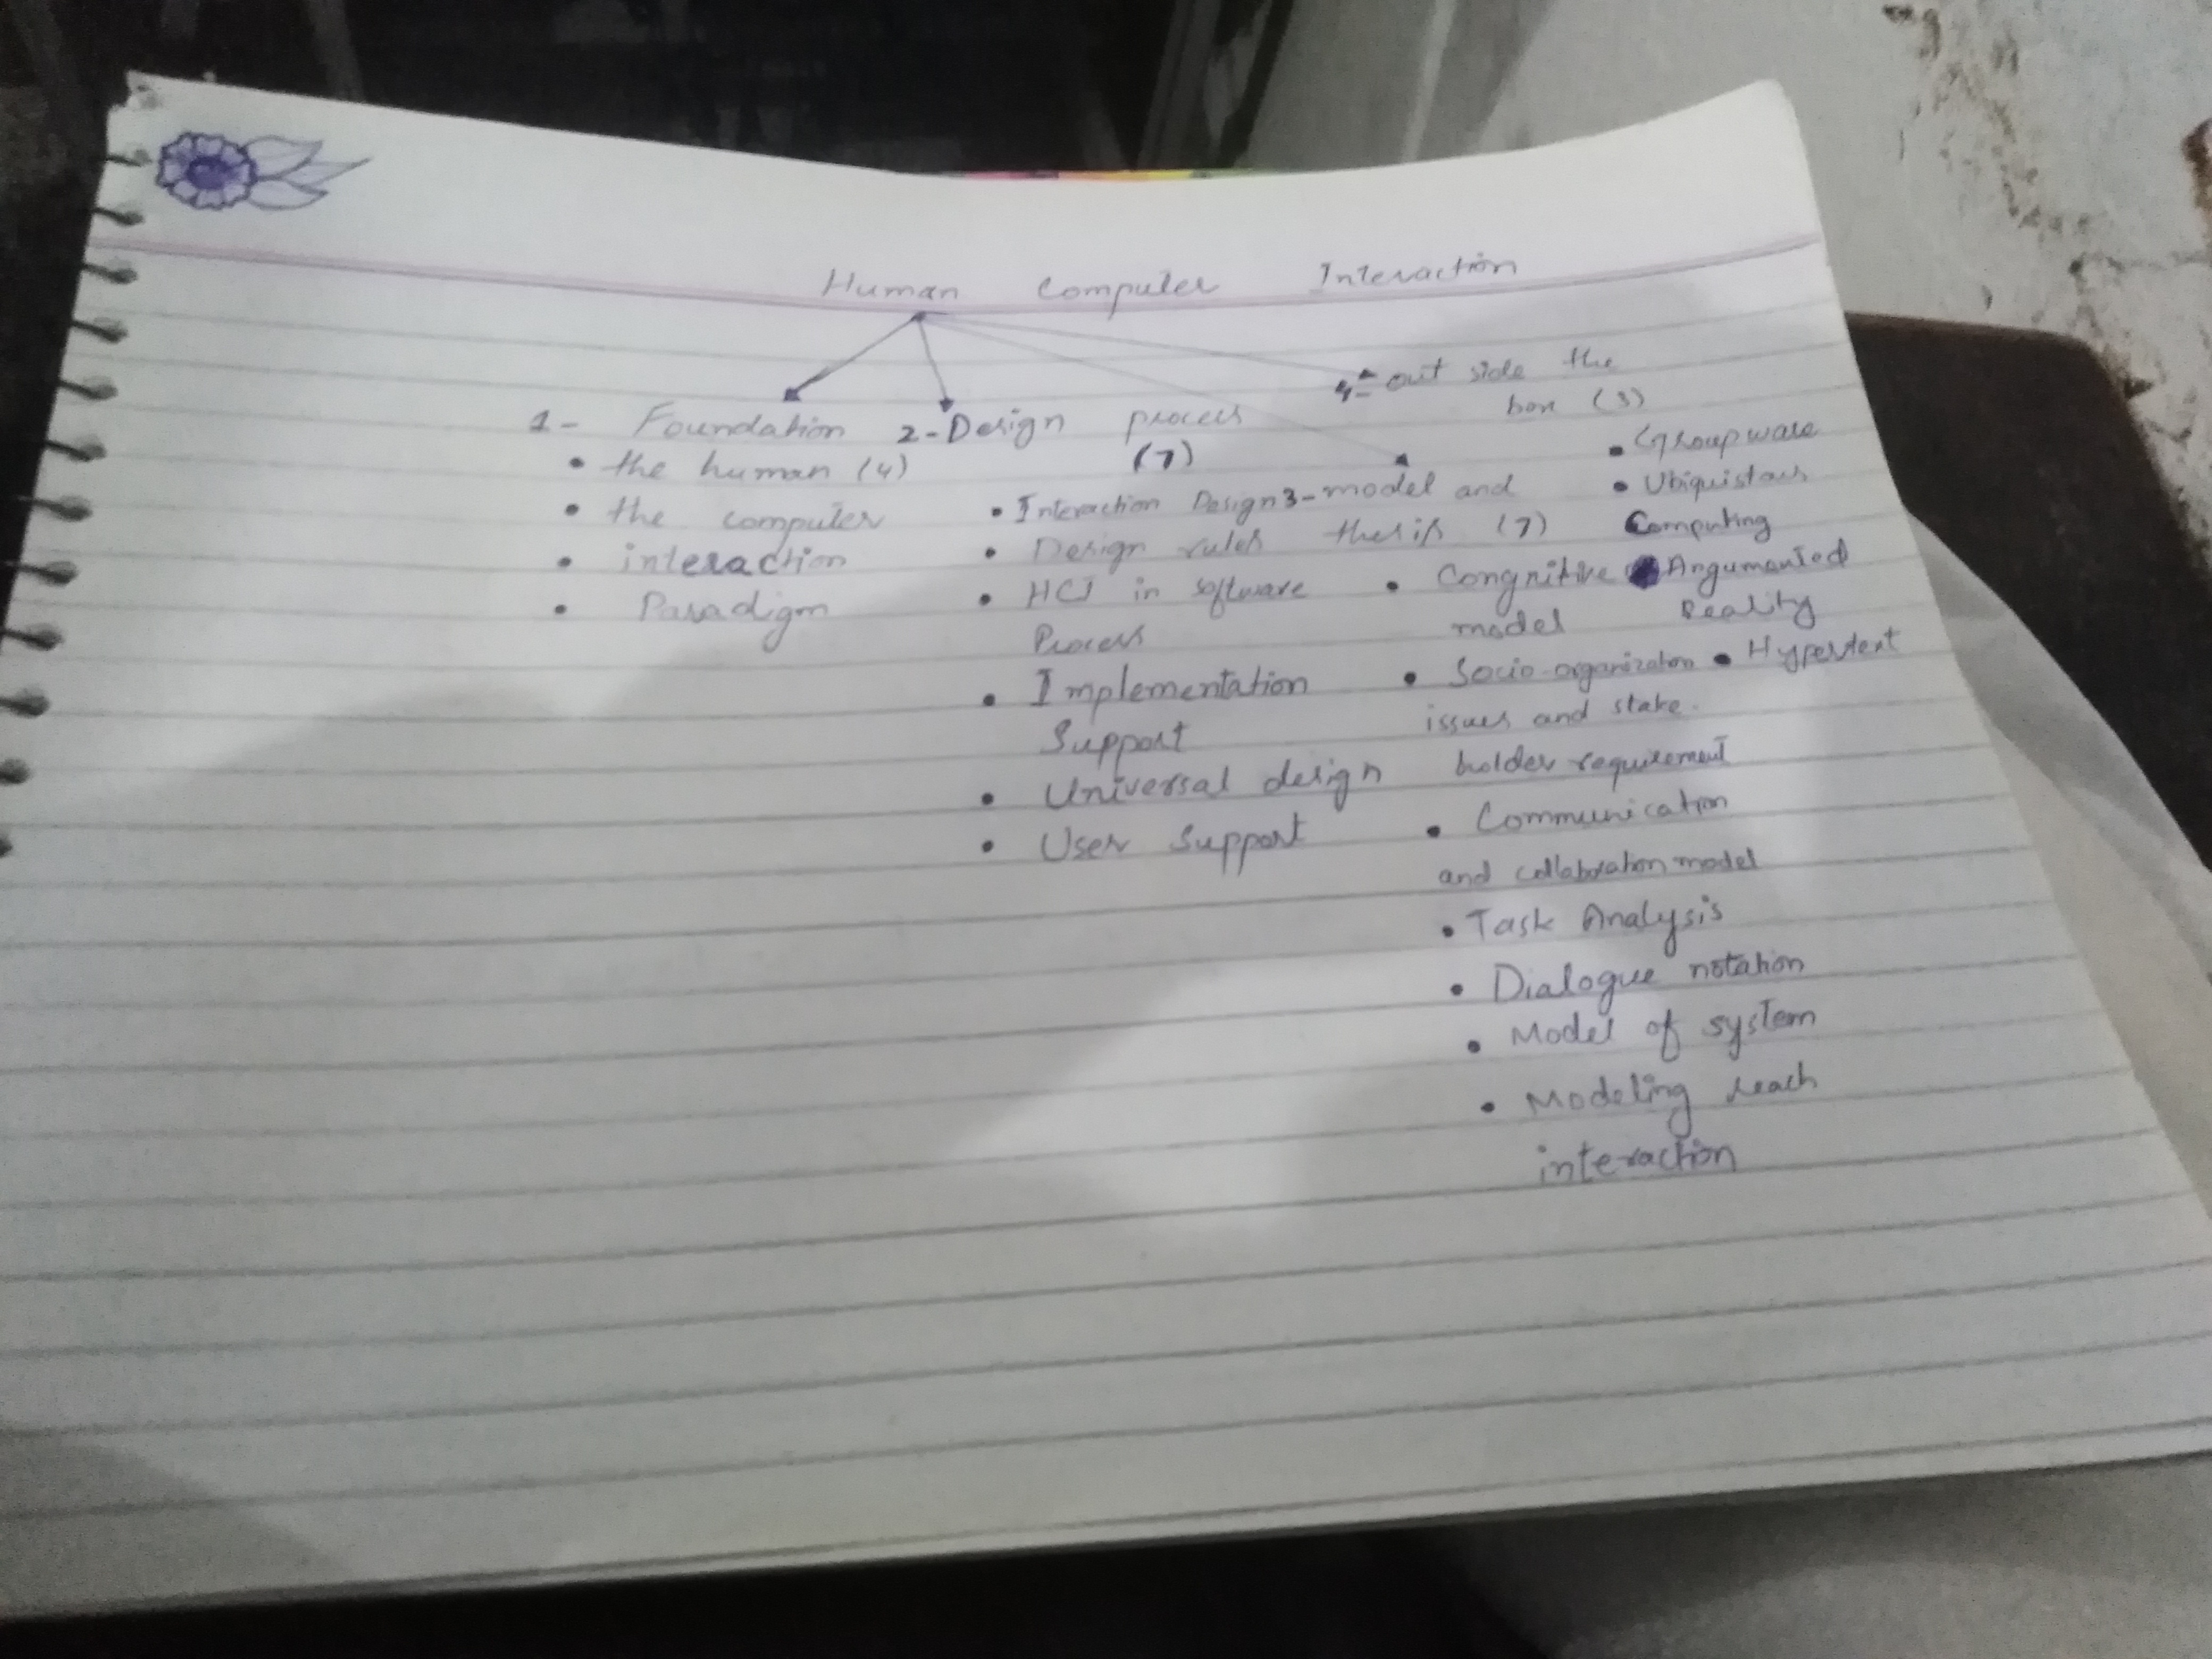 Human Computer Interaction
1- Foundation
• the human (4)
• the computer
• interaction
• Paradigm
2-Design process
(7)
• Interaction Design
• Design rules
• HCI in software
Process
• Implementation
Support
• Universal design
• User Support
3-model and
thesis (7)
• Congnitive
model
• Socio-organization
issues and stake-
holder requirement
• Communication
and collaboration model
• Task Analysis
• Dialogue notation
• Model of system
• Modeling reach
interaction
4- out side the
box (3)
• Groupware
• Ubiquistous
Computing
Argumented
Reality
• Hypertext